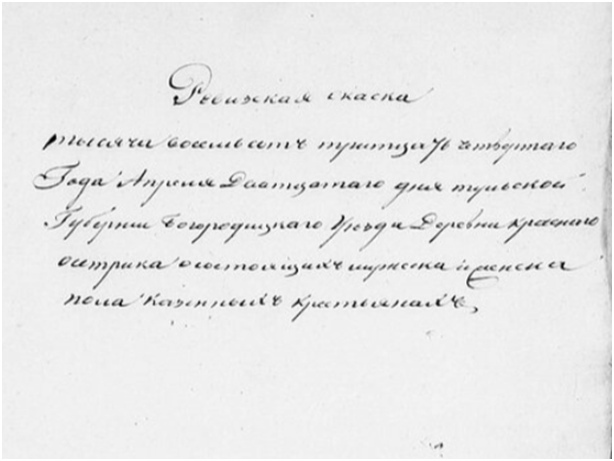 Ревизская скаска
тысяча восемьсотъ тритцать четвертаго
Года Апреля Дватцатаго дня тульской
Губернии Богородицкаго Уезда Деревни красного
острика о состоящихъ мужеска и женска
пола казенныхъ крестьянахъ,